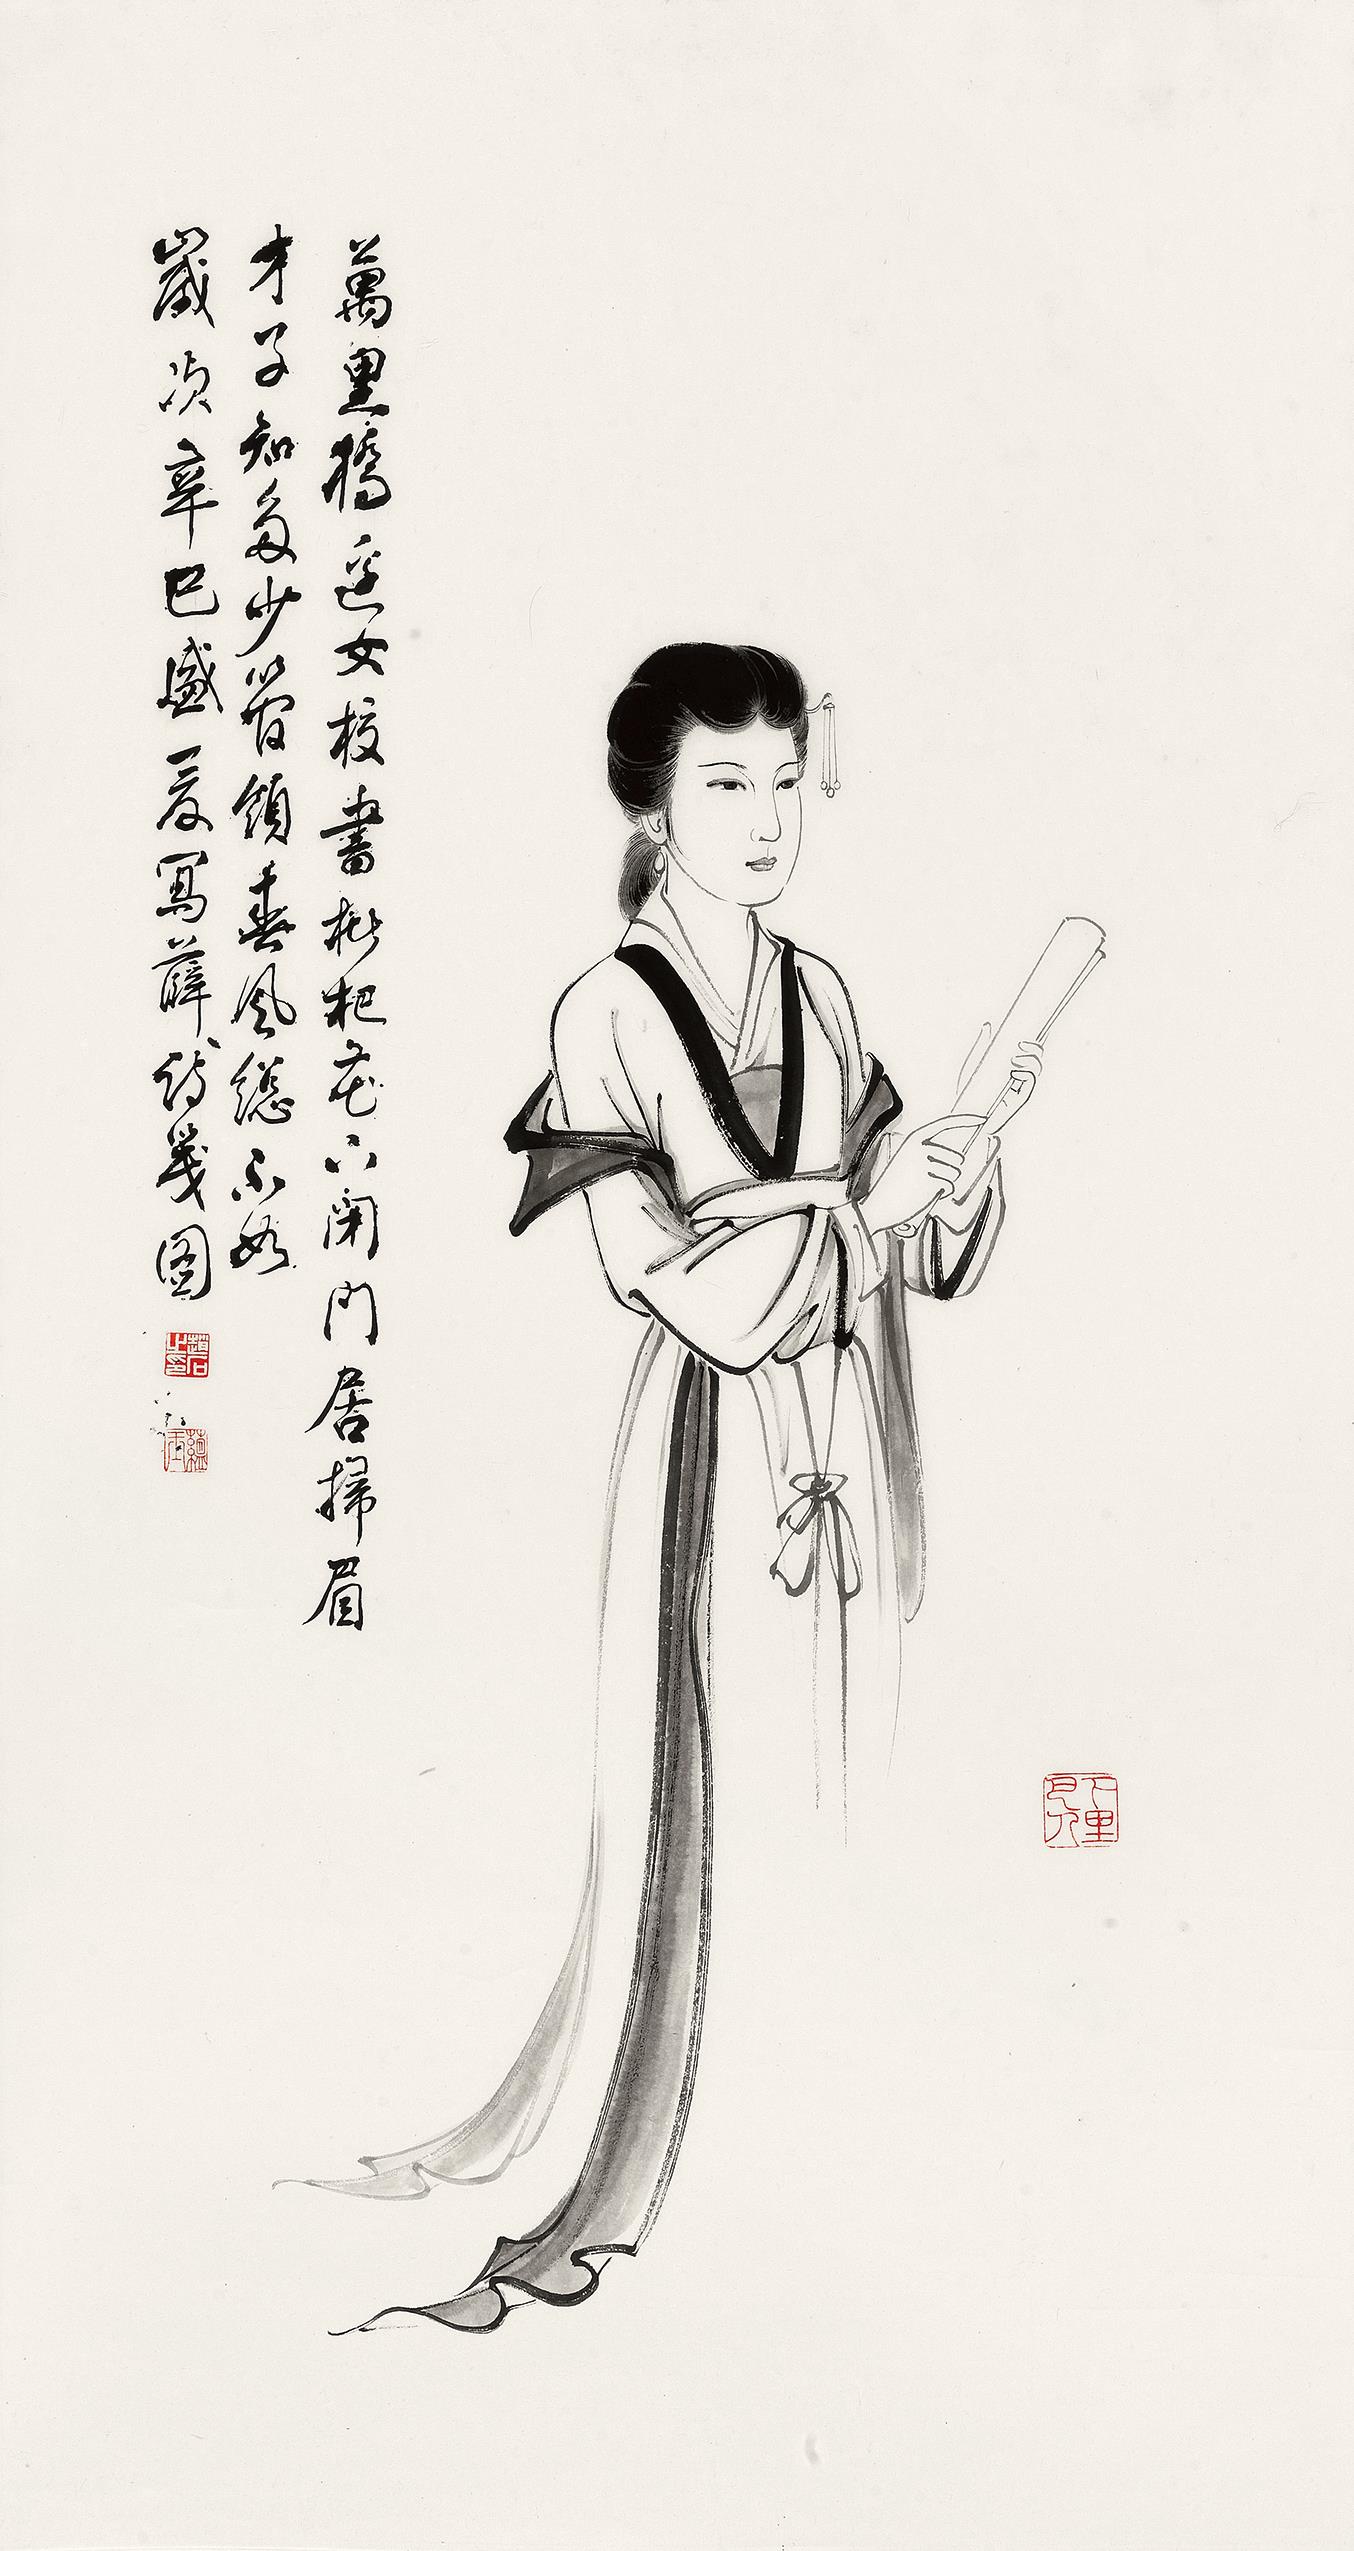 萬里橋邊女校書枇杷花下閉門居掃眉
才子知多少管領春風總不如
歲次辛巳盛夏寫薛濤箋圖